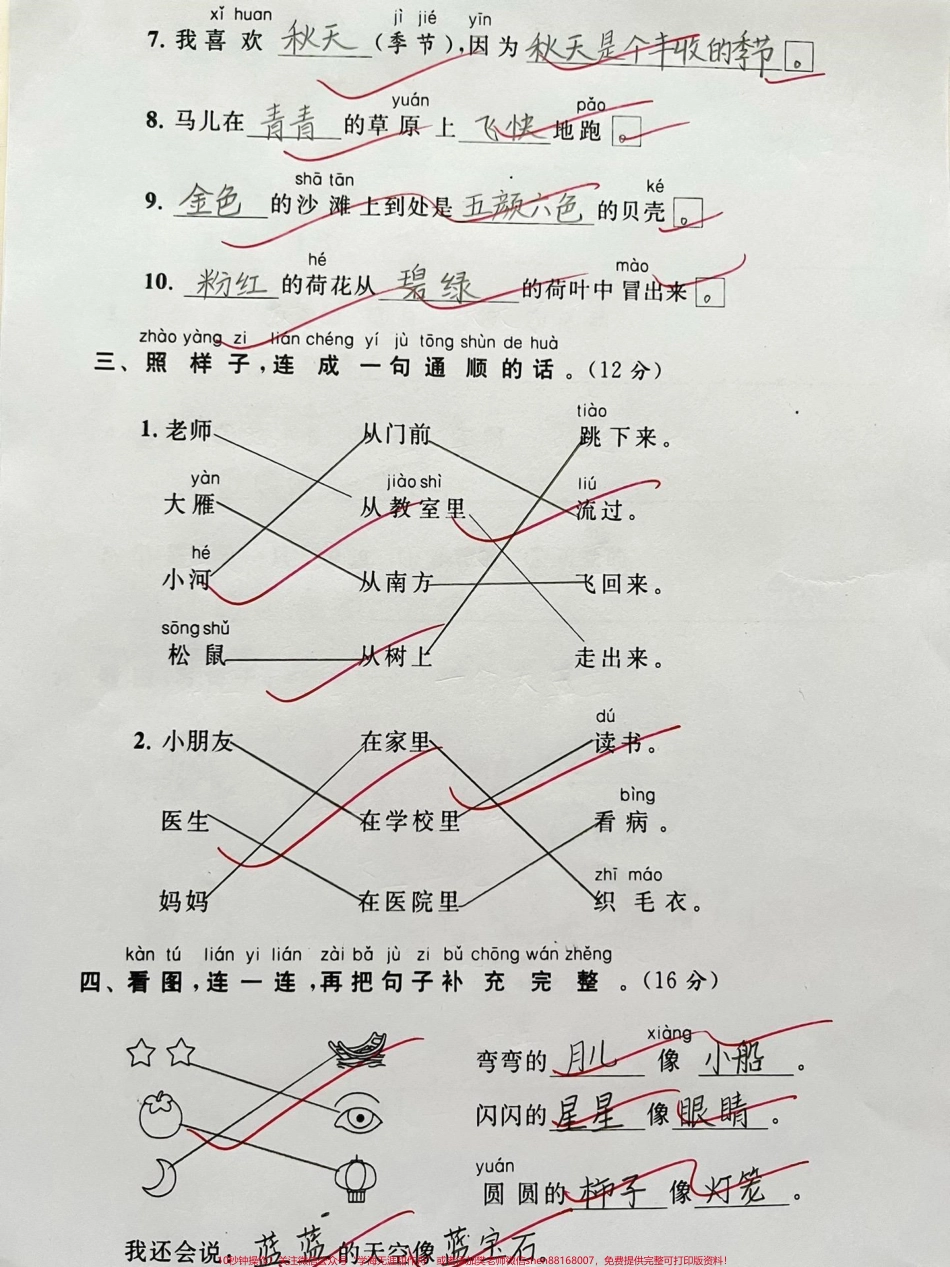 xǐ huan jì jié yīn
7. 我喜欢 秋天 (季节),因为 秋天是个丰收的季节 。
yuán pǎo
8. 马儿在 青青 的草原上 飞快 地跑 。
shā tān ké
9. 金色 的沙滩上到处是 五颜六色 的贝壳 。
hé mào
10. 粉红 的荷花从 碧绿 的荷叶中冒出来 。
zhào yàng zi lián chéng yí jù tōng shùn de huà
三、照样子,连成一句通顺的话。(12分)
tiào
1. 老师 从门前 跳下来。
yàn jiào shì liú
大雁 从教室里 流过。
hé
小河 从南方 飞回来。
sōng shǔ
松鼠 从树上 走出来。
dú
2. 小朋友 在家里 读书。
bìng
医生 在学校里 看病。
zhī máo
妈妈 在医院里 织毛衣。
kàn tú lián yi lián zài bǎ jù zi bǔ chōng wán zhěng
四、看图,连一连,再把句子补充完整。(16分)
xiàng
弯弯的 月儿 像 小船 。
闪闪的 星星 像 眼睛 。
yuán
圆圆的 柿子 像 灯笼 。
我还会说: 蓝蓝的天空像蓝宝石
shen88168007,免费提供完整可打印版资料!